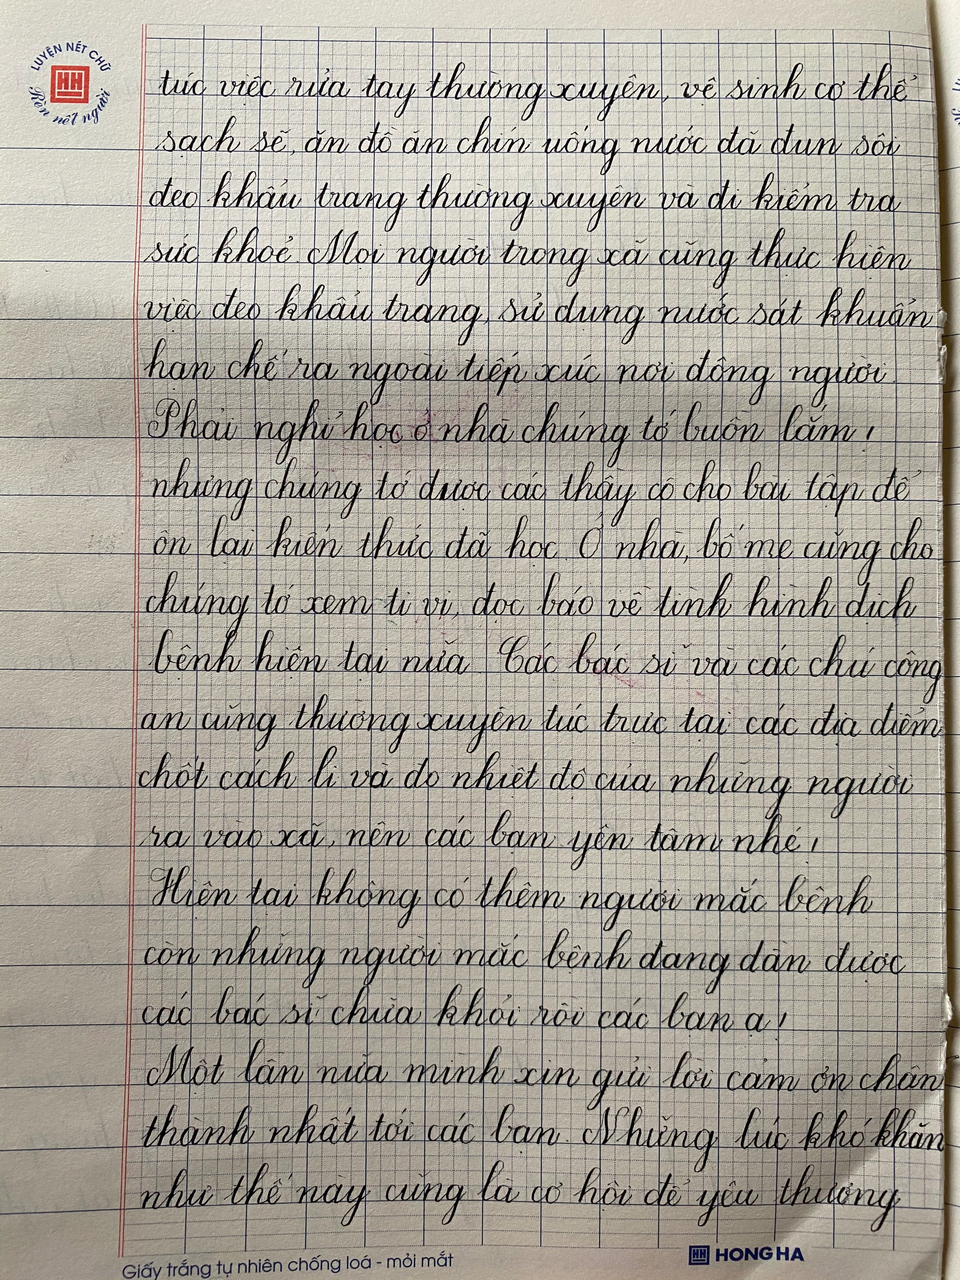 LUYỆN NÉT CHỮ
Rèn nết người
túc việc rửa tay thường xuyên, vệ sinh cơ thể
sạch sẽ, ăn đồ ăn chín uống nước đã đun sôi
đeo khẩu trang thường xuyên và đi kiểm tra
sức khoẻ. Mọi người trong xã cũng thực hiện
việc đeo khẩu trang, sử dụng nước sát khuẩn
hạn chế ra ngoài tiếp xúc nơi đông người.
Phải nghỉ học ở nhà chúng tớ buồn lắm!
nhưng chúng tớ được các thầy cô cho bài tập để
ôn lại kiến thức đã học. Ở nhà, bố mẹ cũng cho
chúng tớ xem ti vi, đọc báo về tình hình dịch
bệnh hiện tại nữa. Các bác sĩ và các chú công
an cũng thường xuyên túc trực tại các địa điểm
chốt cách li và đo nhiệt độ của những người
ra vào xã, nên các bạn yên tâm nhé!
Hiện tại không có thêm người mắc bệnh
còn những người mắc bệnh đang dần được
các bác sĩ chữa khỏi rồi các bạn ạ!
Một lần nữa mình xin gửi lời cảm ơn chân
thành nhất tới các bạn. Những lúc khó khăn
như thế này cũng là cơ hội để yêu thương
Giấy trắng tự nhiên chống loá - mỏi mắt
HONG HA